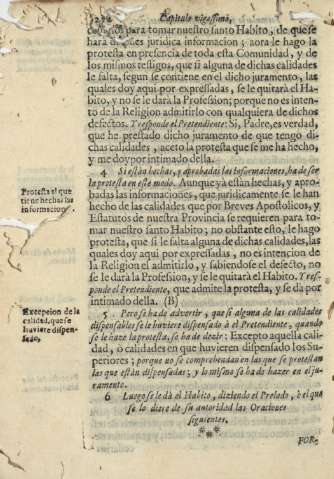 Capitulo vigesimo,
para tomar nuestro santo Habito, de que se
hará juridica informacion; aora le hago la
protesta en presencia de toda esta Comunidad, y de
los mismos testigos, que si alguna de dichas calidades
le falta, segun se contiene en el dicho juramento, las
quales doy aqui por expressadas, se le quitará el Ha-
bito, y no se le dará la Profession; porque no es inten-
to de la Religion admitirlo con qualquiera de dichos
defectos. Y responde el Pretendiente: Si, Padre, es verdad,
que he prestado dicho juramento de que tengo di-
chas calidades, aceto la protesta que se me ha hecho,
y me doy por intimado della.
4 Si están hechas, y aprobadas las informaciones, ha de ser
la protesta en este modo. Aunque yà están hechas, y apro-
Protesta al que
tiene hechas las
informaciones
badas las informaciones, que juridicamente se le han
hecho de las calidades que por Breves Apostolicos, y
Estatutos de nuestra Provincia se requieren para to-
mar nuestro santo Habito; no obstante esto, le hago
protesta, que si le falta alguna de dichas calidades, las
quales doy aqui por expressadas, no es intencion de
la Religion el admitirlo, y sabiendose el defecto, no
se le dará la Profession, y se le quitará el Habito. Y res-
ponde el Pretendiente, que admite la protesta, y se dá por
intimado della. (B)
Excepcion de la
calidad, que se
huviere dispen-
sado,
5 Pero se ha de advertir, que si alguna de las calidades
dispensables se le huviere dispensado à el Pretendiente, quando
se le haze la protesta, se ha de dezir: Excepto aquella cali-
dad, ò calidades en que huvieren dispensado los Su-
periores; porque no se comprehendan en las que se protestan
las que están dispensadas; y lo mismo se ha de hazer en el ju-
ramento.
6 Luego se le dá el Habito, diziendo el Prelado, ò el que
se lo diere de su autoridad las Oraciones
siguientes.
***
POR-